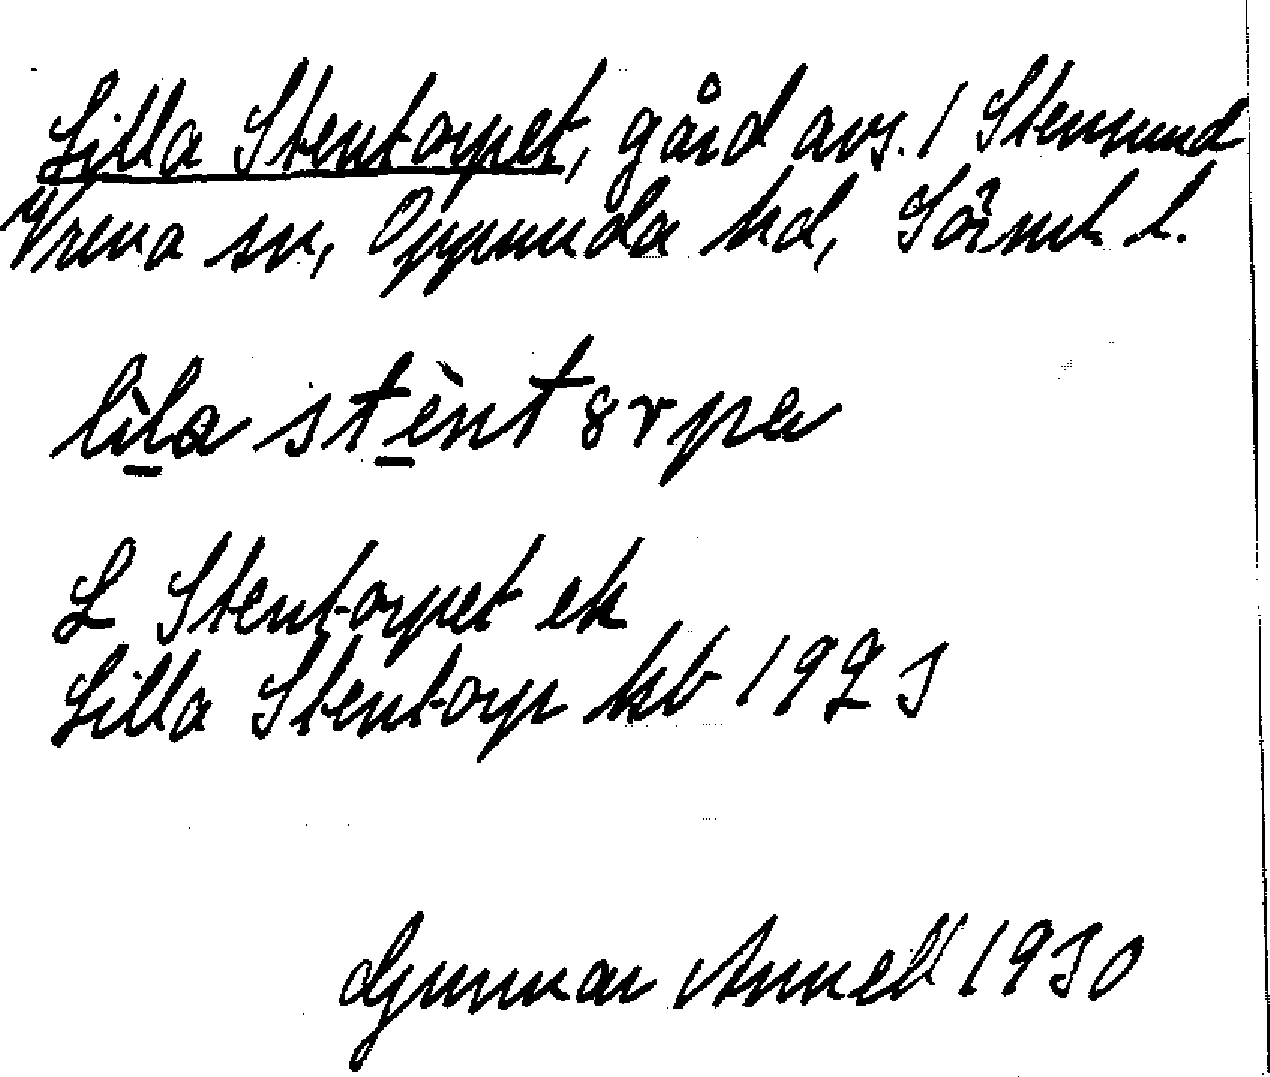 Lilla Stentorpet, gård avs. / Stensund
Vrena sn, Oppunda hd, Sörml l.
lìla stèntørpa
L Stentorpet ek
Lilla Stentorp kb 1925
Gunnar Annell 1930